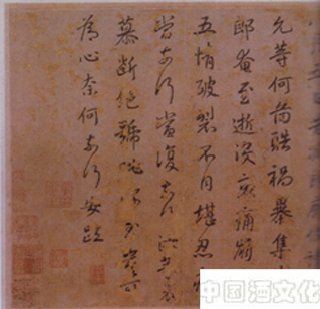 允等何啚酷禍暴集
郎奄至逝没哀痛崩
五情破裂不自堪忍
當奈何當復奈何
慕斷絕號咷豈可
為心奈何奈何安
中国酒文化